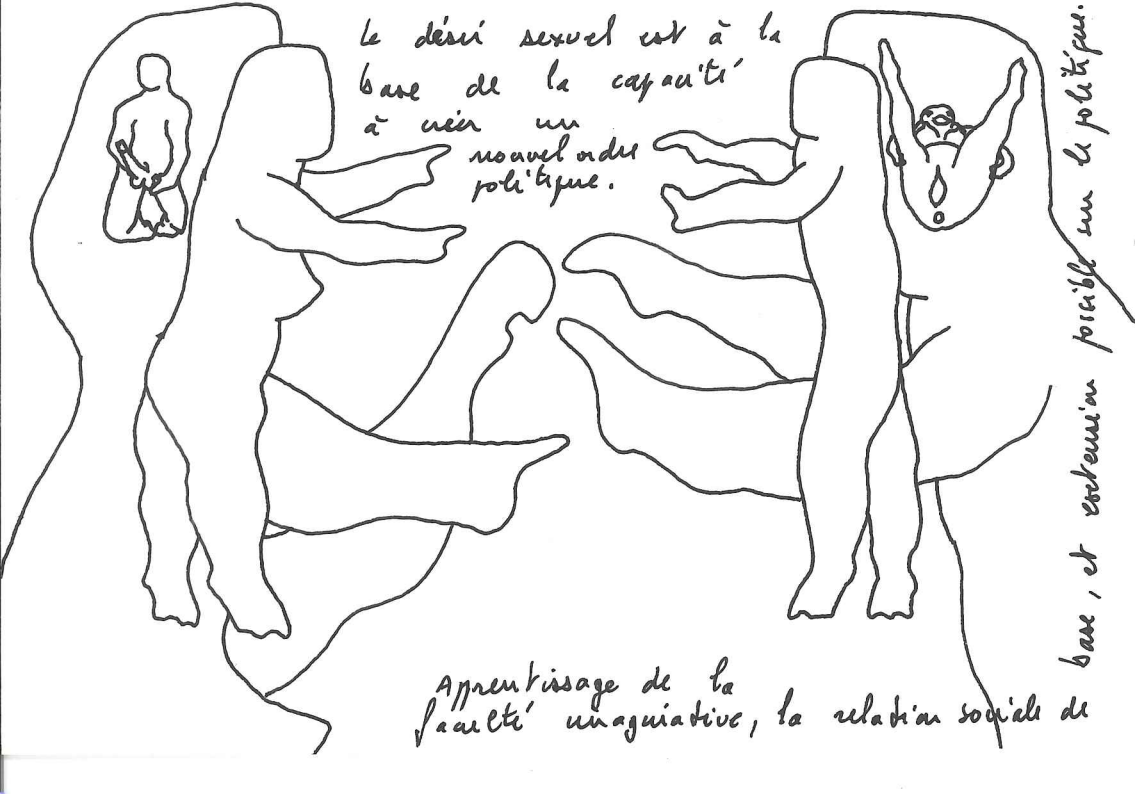 Le désir sexuel est à la
base de la capacité
à créer un
nouvel ordre
politique.
Apprentissage de la
faculté imaginative, la relation sociale de
base, et extension possible sur le politique.